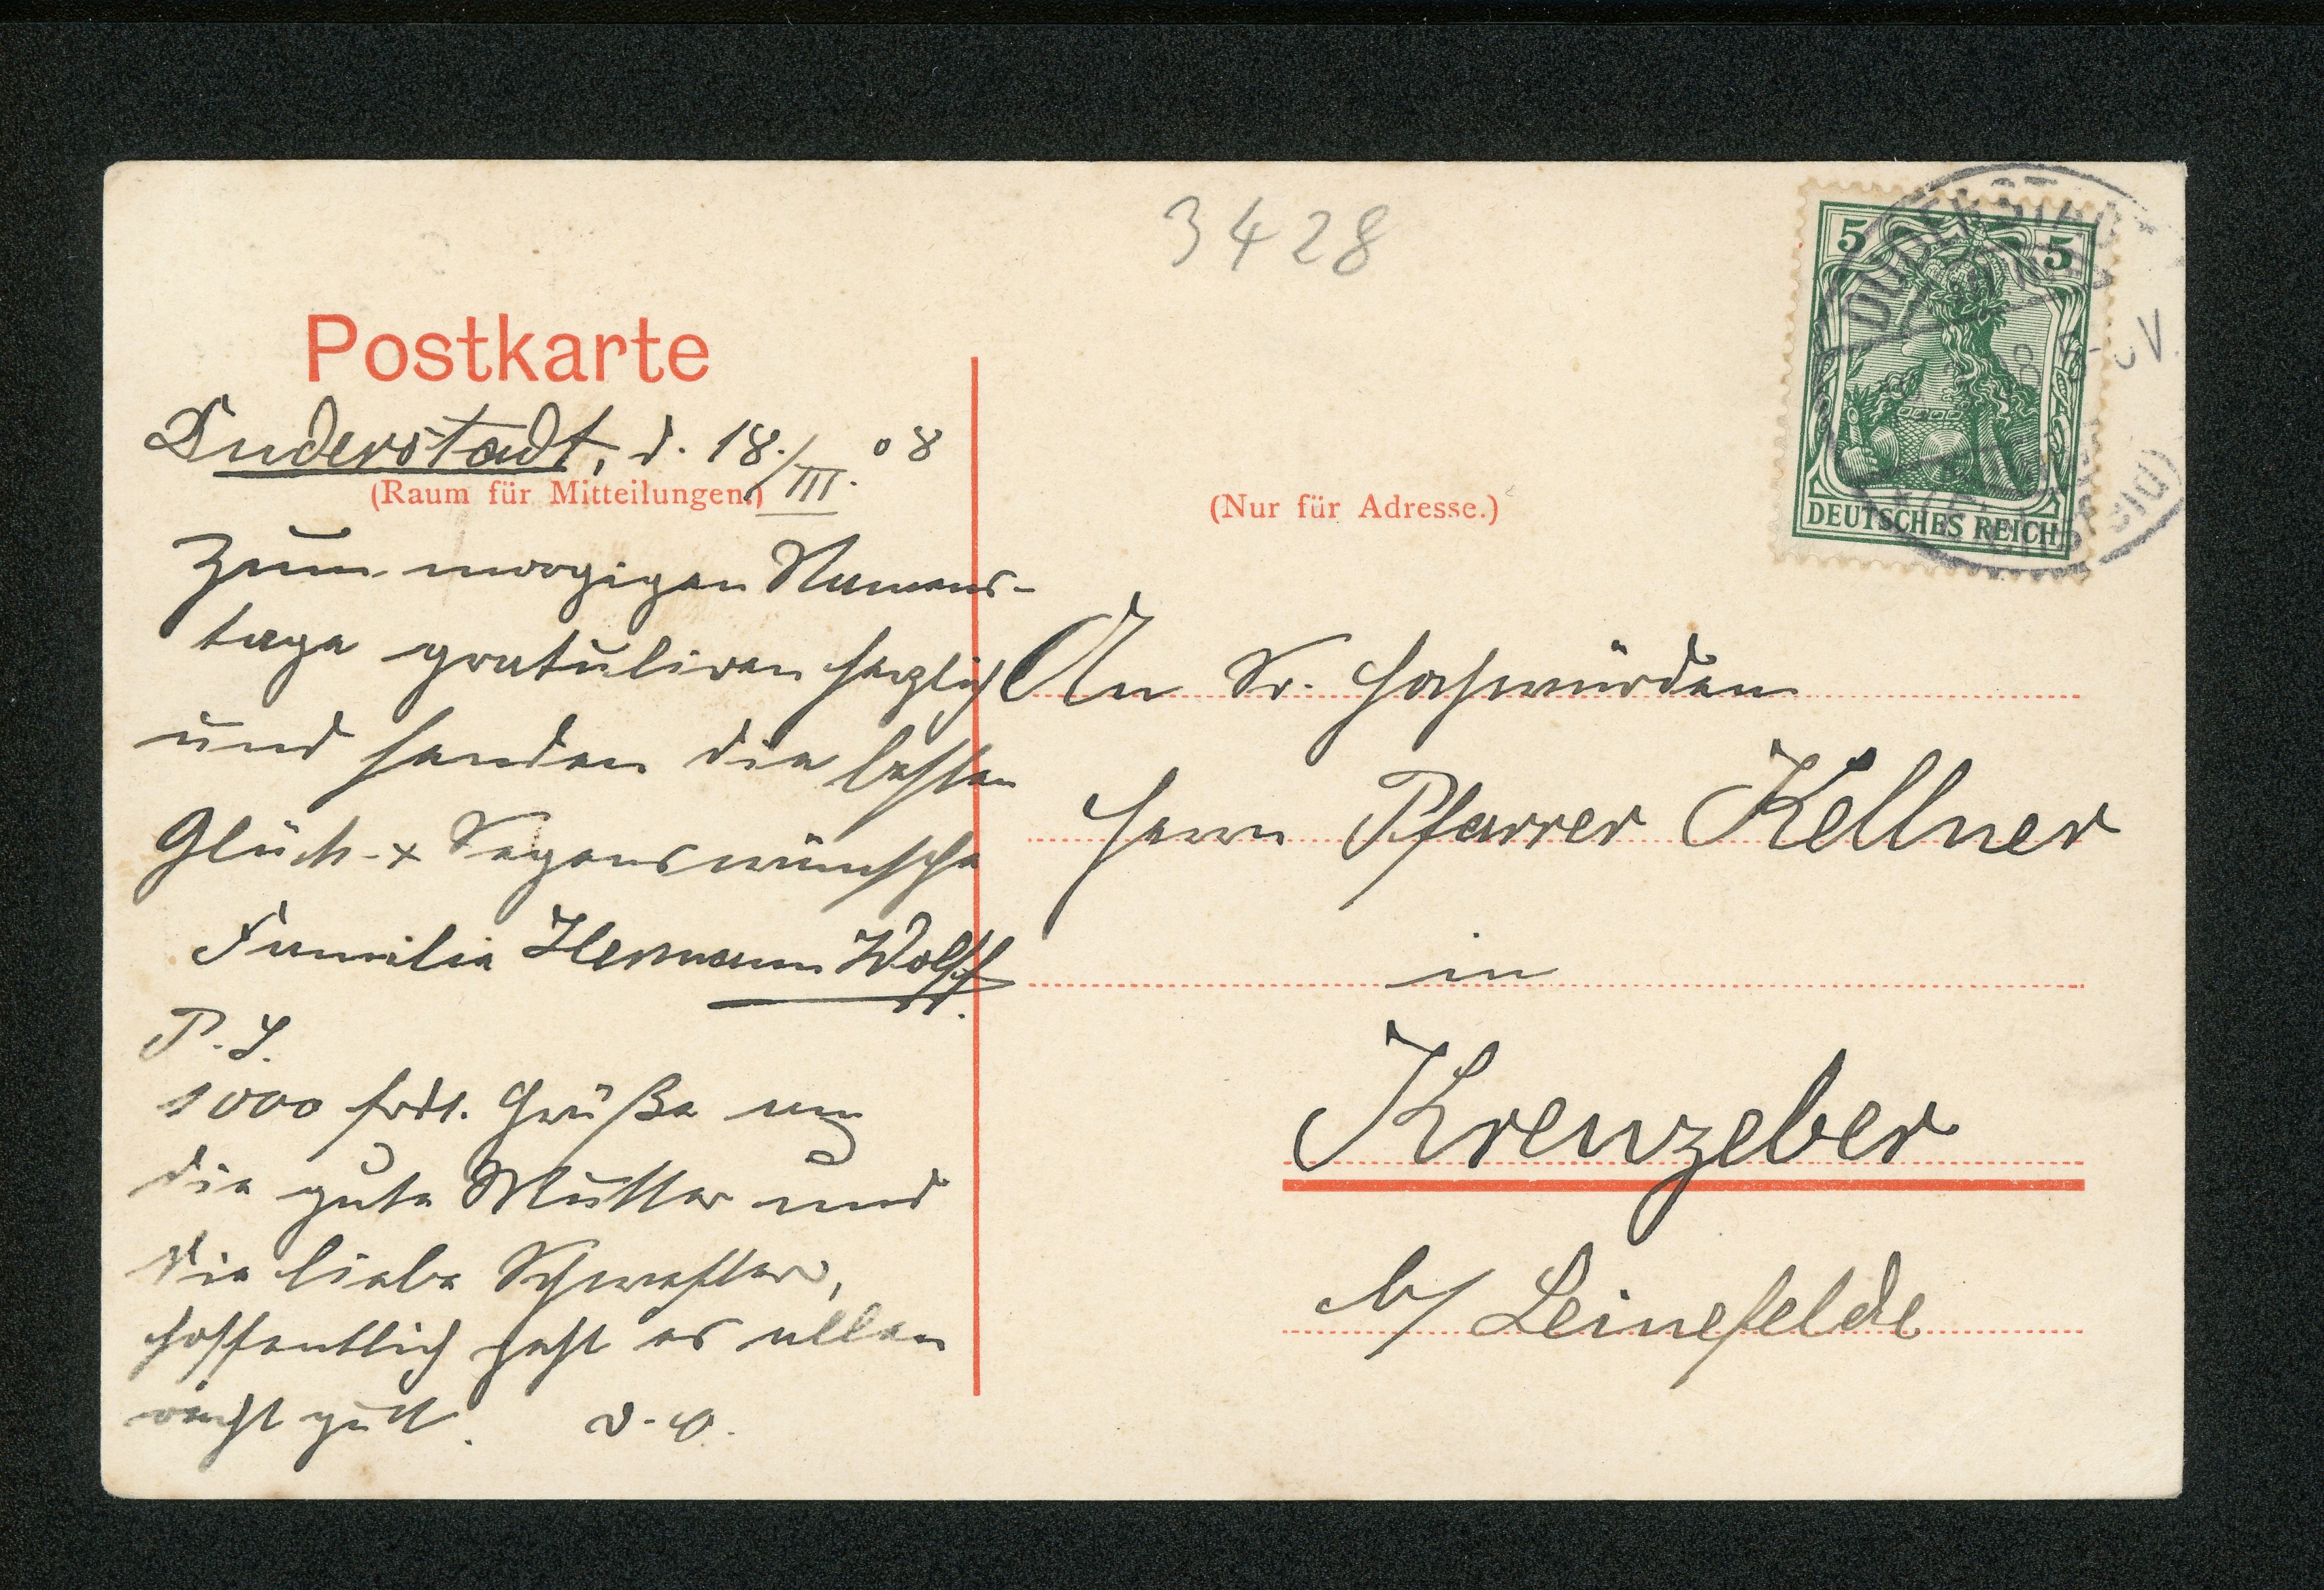 3428
Postkarte
Duderstadt, d. 18./III. 08
(Raum für Mitteilungen.)
Zum morgigen Namens-
tage gratuliren herzlich
und senden die besten
Glück- & Segenswünsche
Familie Hermann Wolff
P.S.
1000 frdl. Grüße an
die gute Mutter und
die liebe Schwester,
hoffentlich geht es allen
recht gut. D. O.
(Nur für Adresse.)
5 5
DEUTSCHES REICH
DUDERSTADT
(Eichsfeld)
An Sr. Hochwürden
Herrn Pfarrer Kellner
in
Kreuzeber
b/ Leinefelde